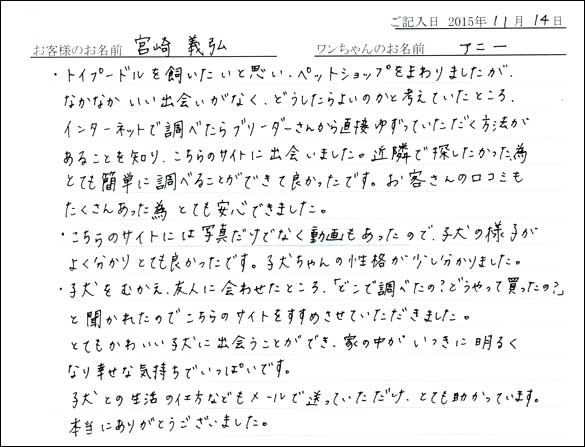 ご記入日 2015年11月14日
お客様のお名前 宮崎 義弘 ワンちゃんのお名前 アニー
・トイプードルを飼いたいと思い、ペットショップをまわりましたが、
なかなかいい出会いがなく、どうしたらよいのかと考えていたところ、
インターネットで調べたらブリーダーさんから直接ゆずっていただく方法が
あることを知り、こちらのサイトに出会いました。近隣で探したかった為
とても簡単に調べることができて良かったです。お客さんの口コミも
たくさんあった為とても安心できました。
・こちらのサイトには写真だけでなく動画もあったので、子犬の様子が
よく分かりとても良かったです。子犬ちゃんの性格が少し分かりました。
・子犬をむかえ、友人に会わせたところ、「どこで調べたの?どうやって買ったの?」
と聞かれたのでこちらのサイトをすすめさせていただきました。
とてもかわいい子犬に出会うことができ、家の中がいっきに明るく
なり幸せな気持ちでいっぱいです。
子犬との生活の仕方などもメールで送っていただけ、とても助かっています。
本当にありがとうございました。